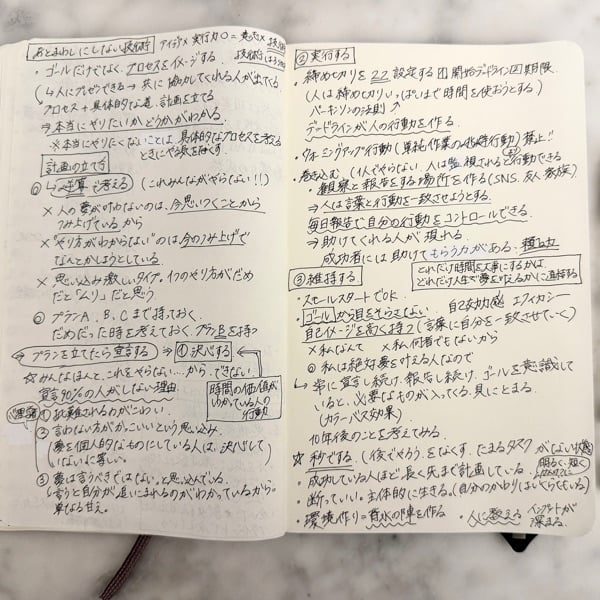 おとまわしにしない技術 アイデア×実行力0=
・ゴールだけでなくプロセスをイメージする
(↳人にプレゼンできる→共に協力してくれる人が出てくる
プロセス+具体的な道、計画を立てる
⇒本当にやりたいかどうかがわかる
※本当にやりたくないことは具体的なプロセスを考える
ときにやる気を無くす
計画の立て方
◎ 逆算で考える (これみんながやらない!!)
× 人の夢が叶わないのは、今思いつくことから
つみ上げているから
× "やり方がわからない"のは今のつみ上げで
なんとかしようとしている
× 思い込み激しいタイプ。1つのやり方がだめ
だと「ムリ」だと思う。
◎ プランA、B、Cまで持っておく
だめだった時を考えておく、プランBを持つ
⇒プランを立てたら宣言する→①決心する
☆みんなほんと、これをやらない…から、できない
宣言90%の人がしない理由
時間の価値が
わかっている人の
行動
理論
① 批難されるのがこわい
② 言わない方がかっこいいという思い込み
(夢を個人的なものにしている人は、決心して
いないに等しい
③ 夢は言うべきではない。と思い込んでいる
(言うと自分が追いこまれるのがわかっているから。
単なる甘え。
②実行する
・締めセカリを22設定する 団開始デッドライン団期限
(人は締め切りいっぱいまで時間を使おうとする)
パーキンソンの法則
デッドラインが人の行動を作る。
・ウォーミングアップ行動 禁止!!
・巻き込む (1人でやらない 人は監視されると行動できる
・観察と報告をする場所を作る(SNS、友人、家族)
⇒人は言葉と行動を一致させようとする。
毎日報告で自分の行動をコントロールできる。
⇒助けてくれる人が現れる。
成功者には助けてもらう力がある。
どれだけ時間を大事にするかは、
どれだけ人生で夢を叶えるかに直結する
③維持する
・スモールスタートでOK
・ゴールから目をそらさない 自己効力感 エフィカシー
自己イメージを高く持つ(言葉に自分を一致させていく)
×私なんて ×私何者でもないから
◎私は絶対夢を叶える人なので
↳常に宣言し続け、報告し続け、ゴールを意識して
いると、必要なものが入ってくる、目にとまる。
(カラーバス効果)
10年後のことを考えてみる
☆秒でする(後でやろう)をなくす。たまるタスクがない状態
・成功している人ほど長く先まで計画している
・断っていい。主体的に生きる。(自分のかわりはいくらでもいる)
・環境作り=背水の陣を作る ・人に教える インプットが
深まる